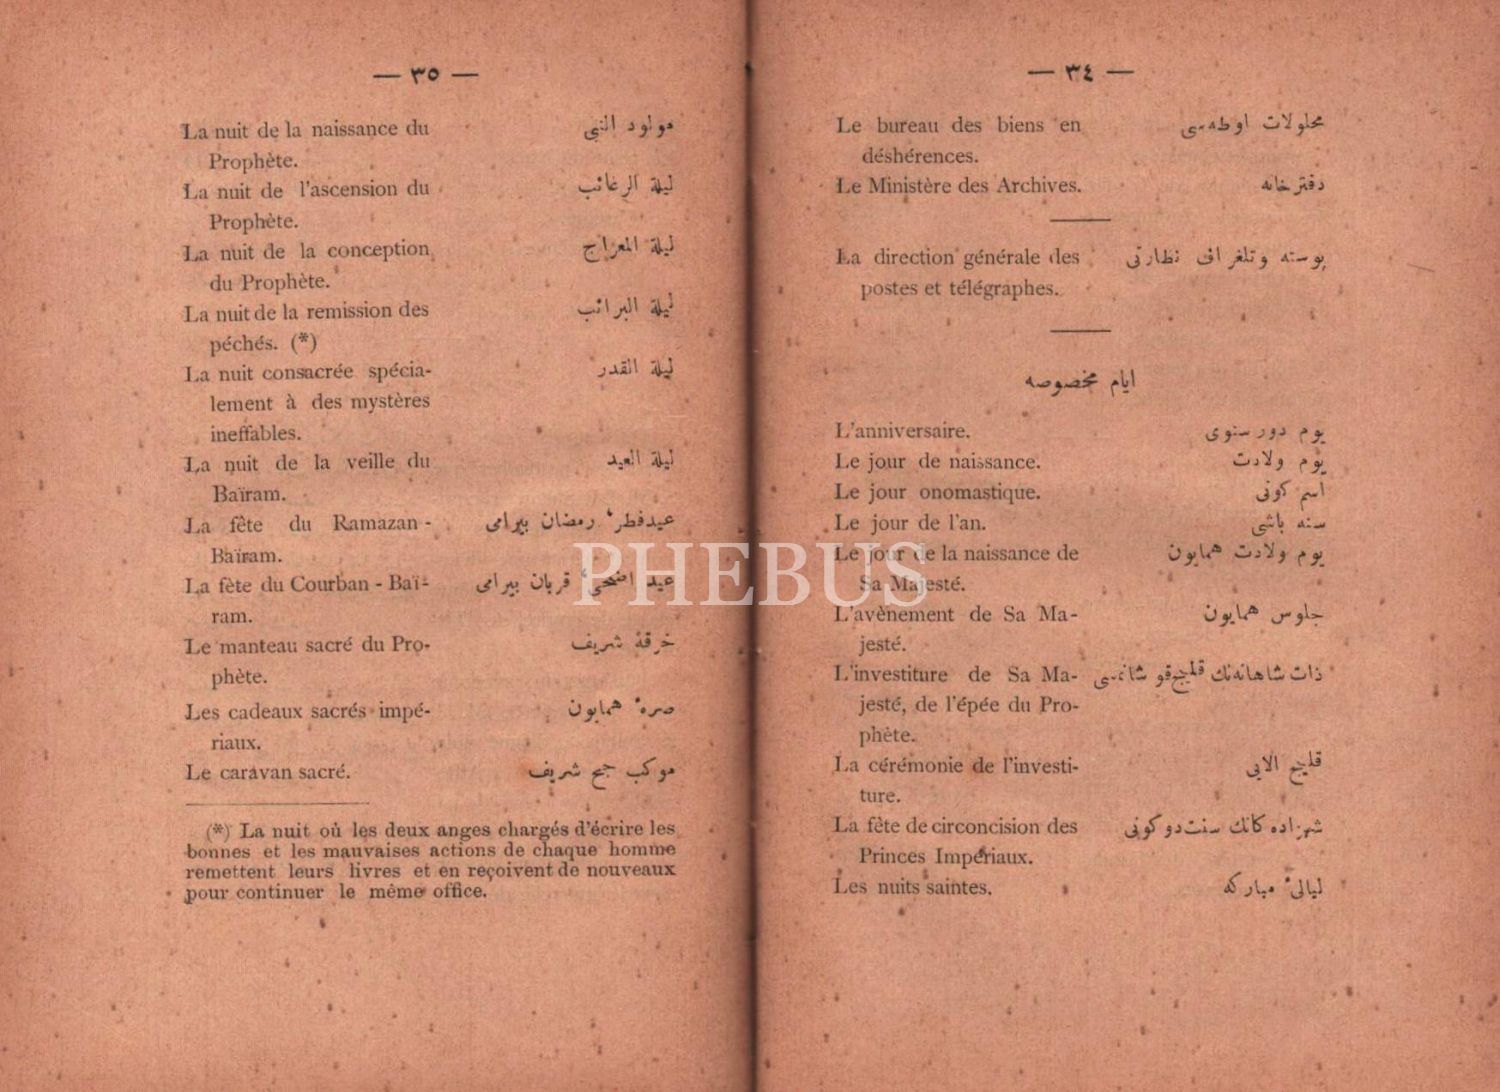 — ٣٤ —
Le bureau des biens en محلولات اوطه‌سی
déshérences.
Le Ministère des Archives. دفترخانه
La direction générale des پوسته وتلغراف نظارتی
postes et télégraphes.
ایام مخصوصه
L'anniversaire. یوم دور سنوی
Le jour de naissance. یوم ولادت
Le jour onomastique. اسم کونی
Le jour de l'an. سنه باشی
Le jour de la naissance de یوم ولادت همایون
Sa Majesté.
L'avènement de Sa Ma- جلوس همایون
jesté.
L'investiture de Sa Ma- ذات شاهانه‌نك قلیج قوشانمسی
jesté, de l'épée du Pro-
phète.
La cérémonie de l'investi- قلیج الایی
ture.
La fête de circoncision des شهزاده کانك سنت دوکونی
Princes Impériaux.
Les nuits saintes. لیالیٔ مبارکه
— ٣٥ —
La nuit de la naissance du مولود النبی
Prophète.
La nuit de l'ascension du لیلة الرغائب
Prophète.
La nuit de la conception لیلة المعراج
du Prophète.
La nuit de la remission des لیلة البرائب
péchés. (*)
La nuit consacrée spécia- لیلة القدر
lement à des mystères
ineffables.
La nuit de la veille du لیلة العید
Baïram.
La fête du Ramazan - عید فطر، رمضان بیرامی
Baïram.
La fète du Courban - Baï- عید اضحی، قربان بیرامی
ram.
Le manteau sacré du Pro- خرقۀ شریف
phète.
Les cadeaux sacrés impé- صرهٔ همایون
riaux.
Le caravan sacré. موکب حج شریف
(*) La nuit où les deux anges chargés d'écrire les
bonnes et les mauvaises actions de chaque homme
remettent leurs livres et en reçoivent de nouveaux
pour continuer le même office.
PHEBUS